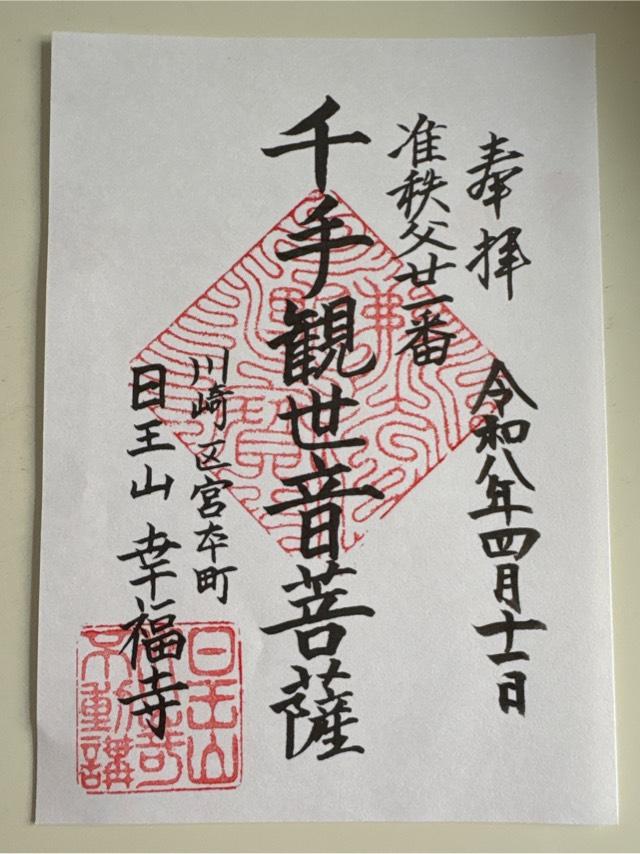 奉拝
令和八年四月十一日
准秩父廿一番
千手観世音菩薩
川崎区宮本町
日王山 幸福寺
日王山
不動講